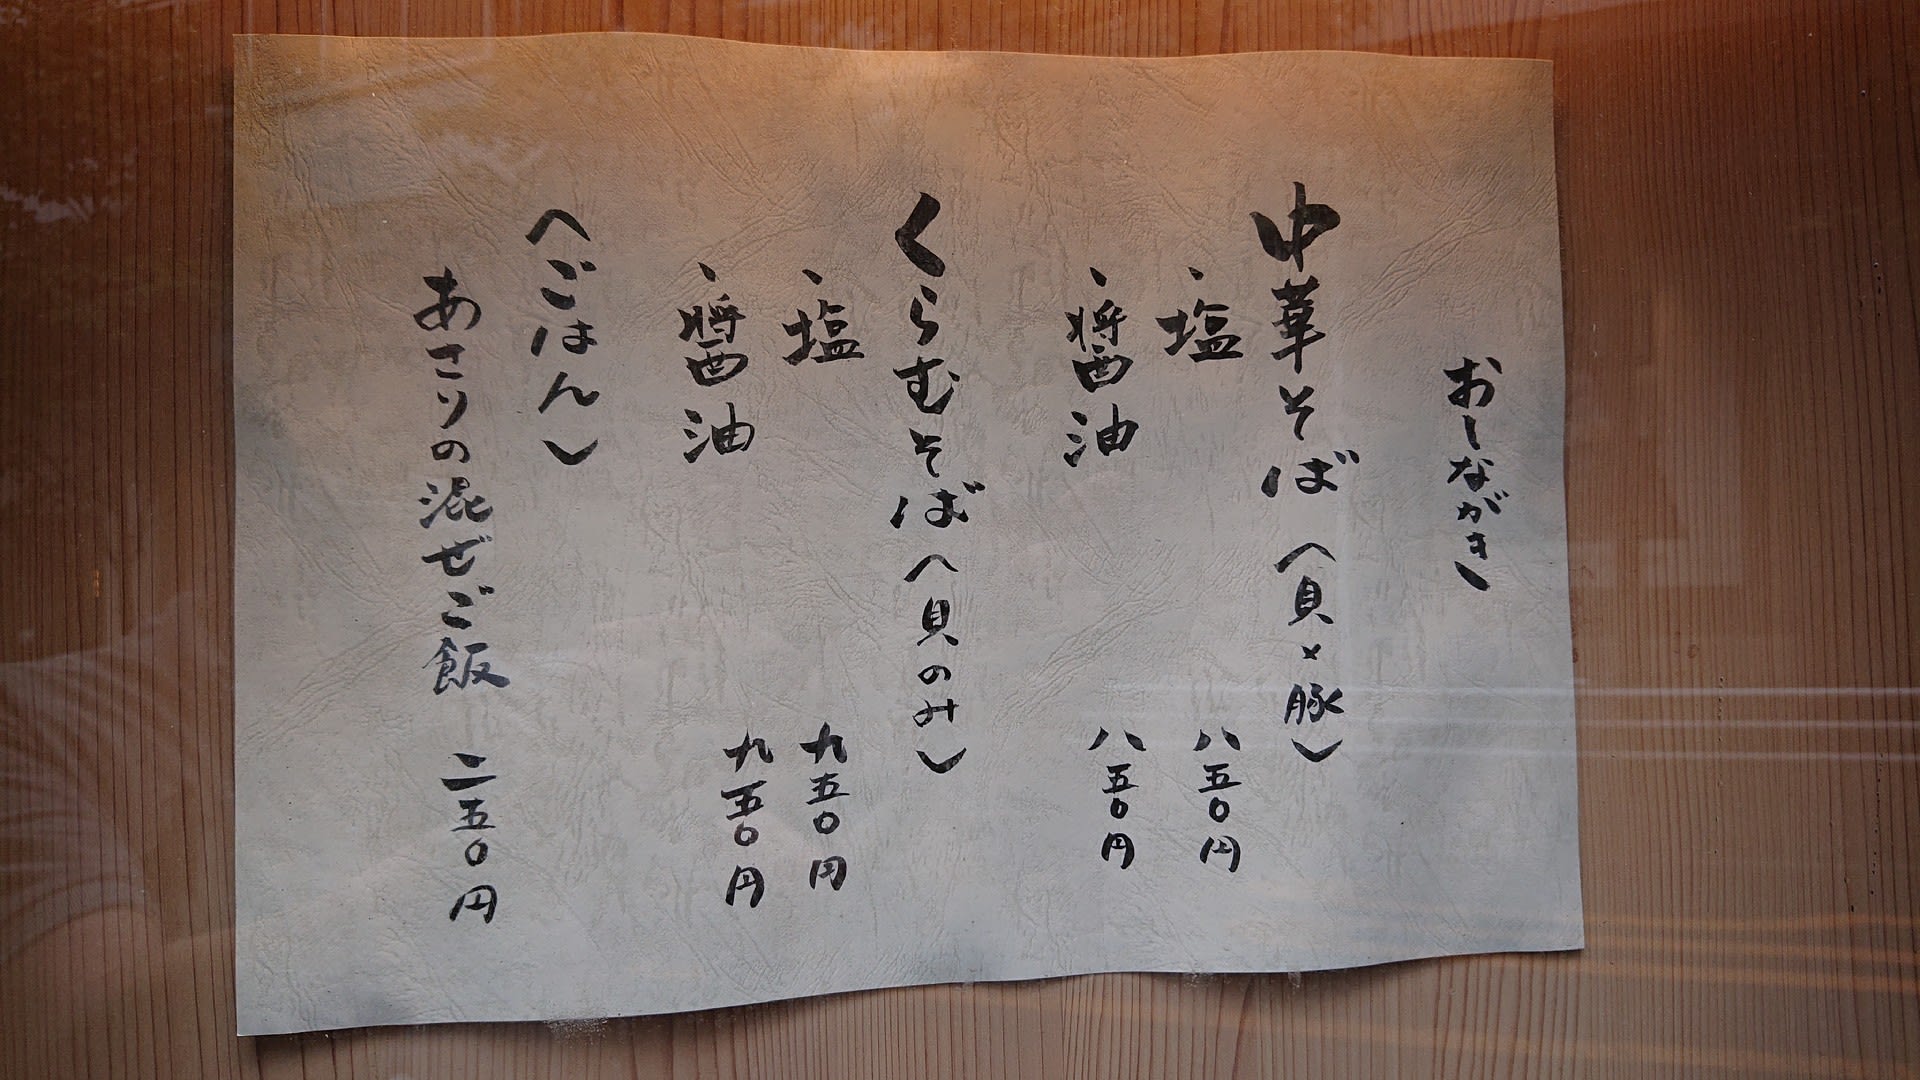 おしながき
中華そば（貝×豚）
・塩 八五〇円
・醤油 八五〇円
くらむそば（貝のみ）
・塩 九五〇円
・醤油 九五〇円
（ごはん）
あさりの混ぜご飯 二五〇円